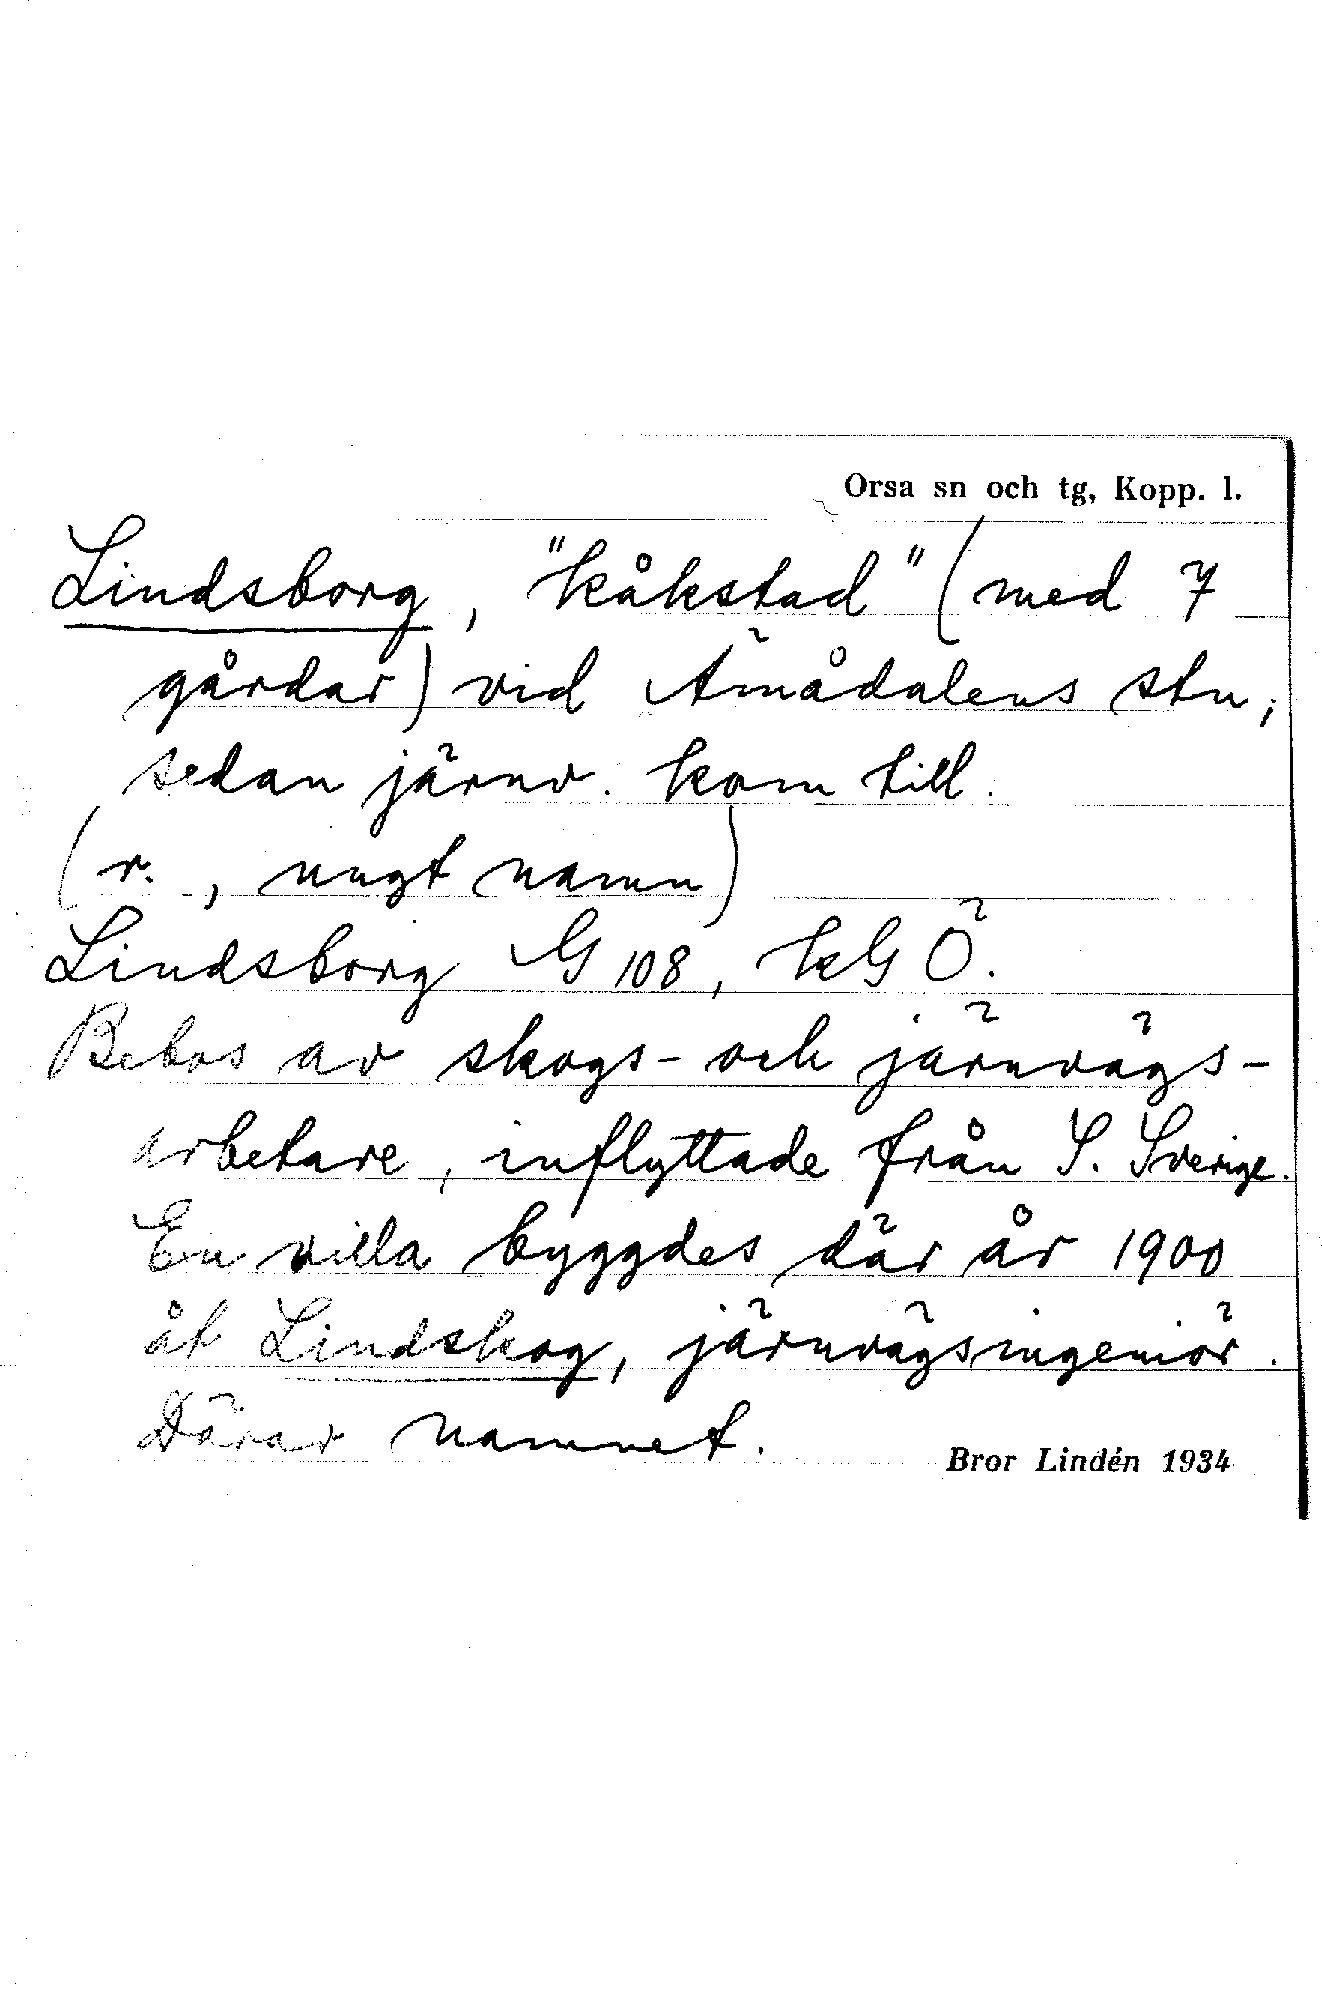 Orsa sn och tg, Kopp. l.
Lindsborg, "kåkstad" (med 7
gårdar) vid Ämådalens stn,
sedan järnv. kom till.
(r. , nugt namn)
Lindsborg G 108, kG Ö.
Bebos av skogs- och järnvägs-
arbetare, inflyttade från S. Sverige.
En villa byggdes där år 1900
åt Lindskog, järnvägsingeniör.
Därav namnet.
Bror Lindén 1934